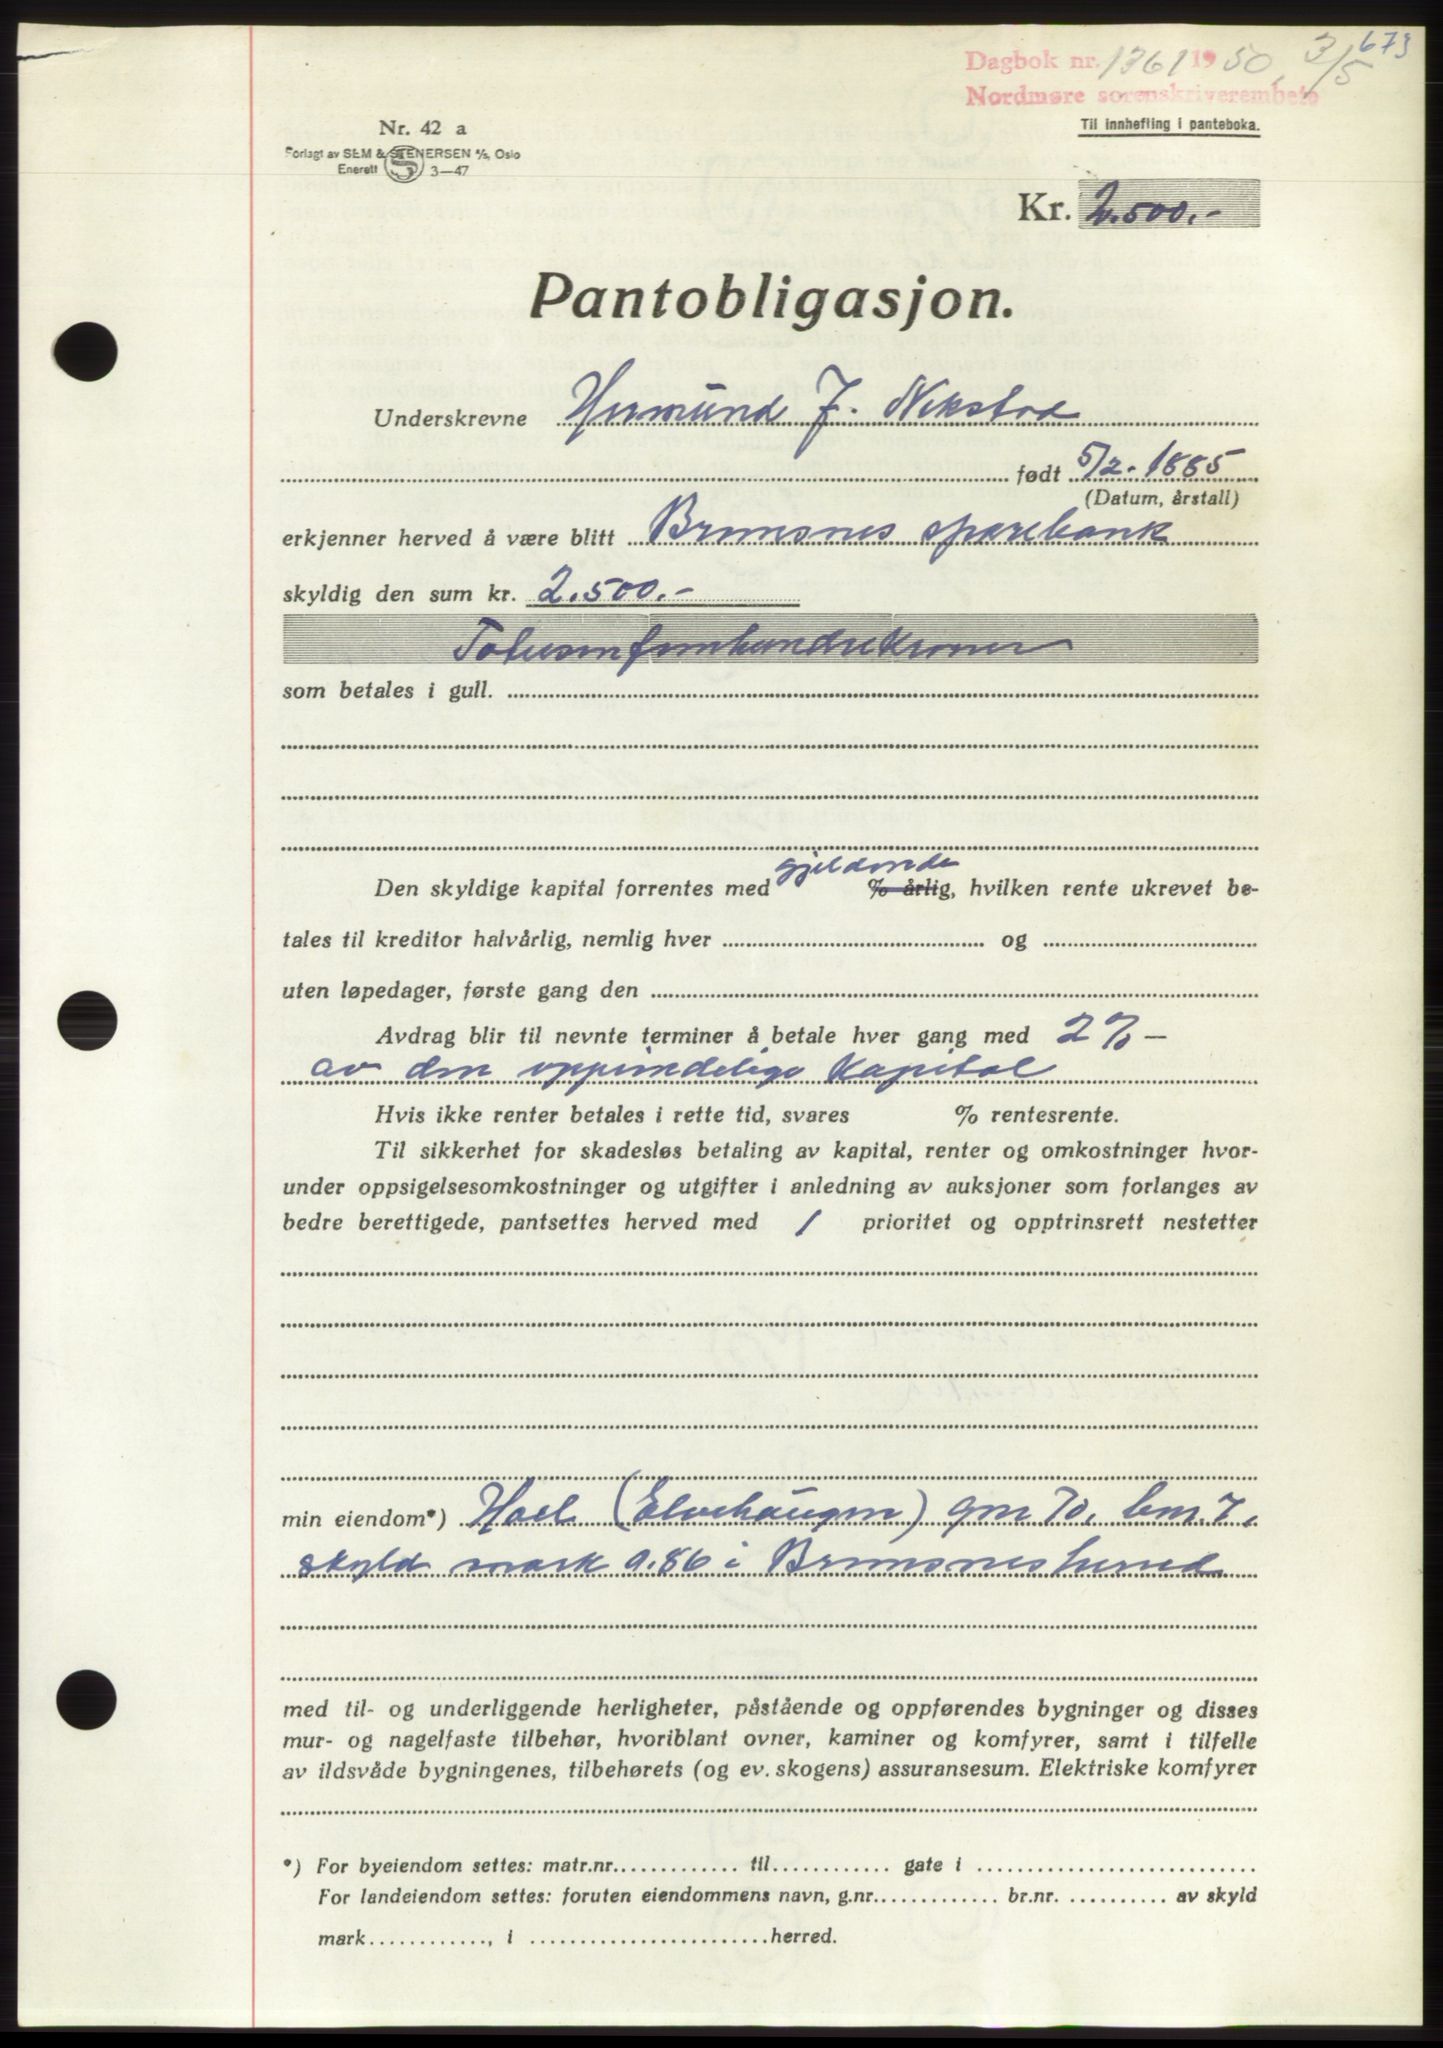 673
Dagbok nr. 1361 1950 3/5
Nordmøre sorenskriverembete
Til innhefting i panteboka.
Nr. 42 a
Forlagt av SEM & STENERSEN A/S, Oslo
Enerett S 3—47
Kr. 2.500.-
Pantobligasjon.
Underskrevne Hermund J. Nekstad
født 5/2. 1885
(Datum, årstall)
erkjenner herved å være blitt Bremsnes sparebank
skyldig den sum kr. 2.500.-
Totusenfemhundrekroner
som betales i gull.
gjeldende
Den skyldige kapital forrentes med % årlig, hvilken rente ukrevet be-
tales til kreditor halvårlig, nemlig hver og
uten løpedager, første gang den
Avdrag blir til nevnte terminer å betale hver gang med 2 % —
av den oppindelige kapital
Hvis ikke renter betales i rette tid, svares % rentesrente.
Til sikkerhet for skadesløs betaling av kapital, renter og omkostninger hvor-
under oppsigelsesomkostninger og utgifter i anledning av auksjoner som forlanges av
bedre berettigede, pantsettes herved med 1 prioritet og opptrinsrett nestetter
min eiendom*) Hoel (Elvehaugen) gnr 70, bnr. 7,
skyld mark 0.86 i Bremsnes herred
med til- og underliggende herligheter, påstående og oppførendes bygninger og disses
mur- og nagelfaste tilbehør, hvoriblant ovner, kaminer og komfyrer, samt i tilfelle
av ildsvåde bygningenes, tilbehørets (og ev. skogens) assuransesum. Elektriske komfyrer
*) For byeiendom settes: matr.nr. til gate i
For landeiendom settes: foruten eiendommens navn, g.nr. br.nr. av skyld
mark , i herred.